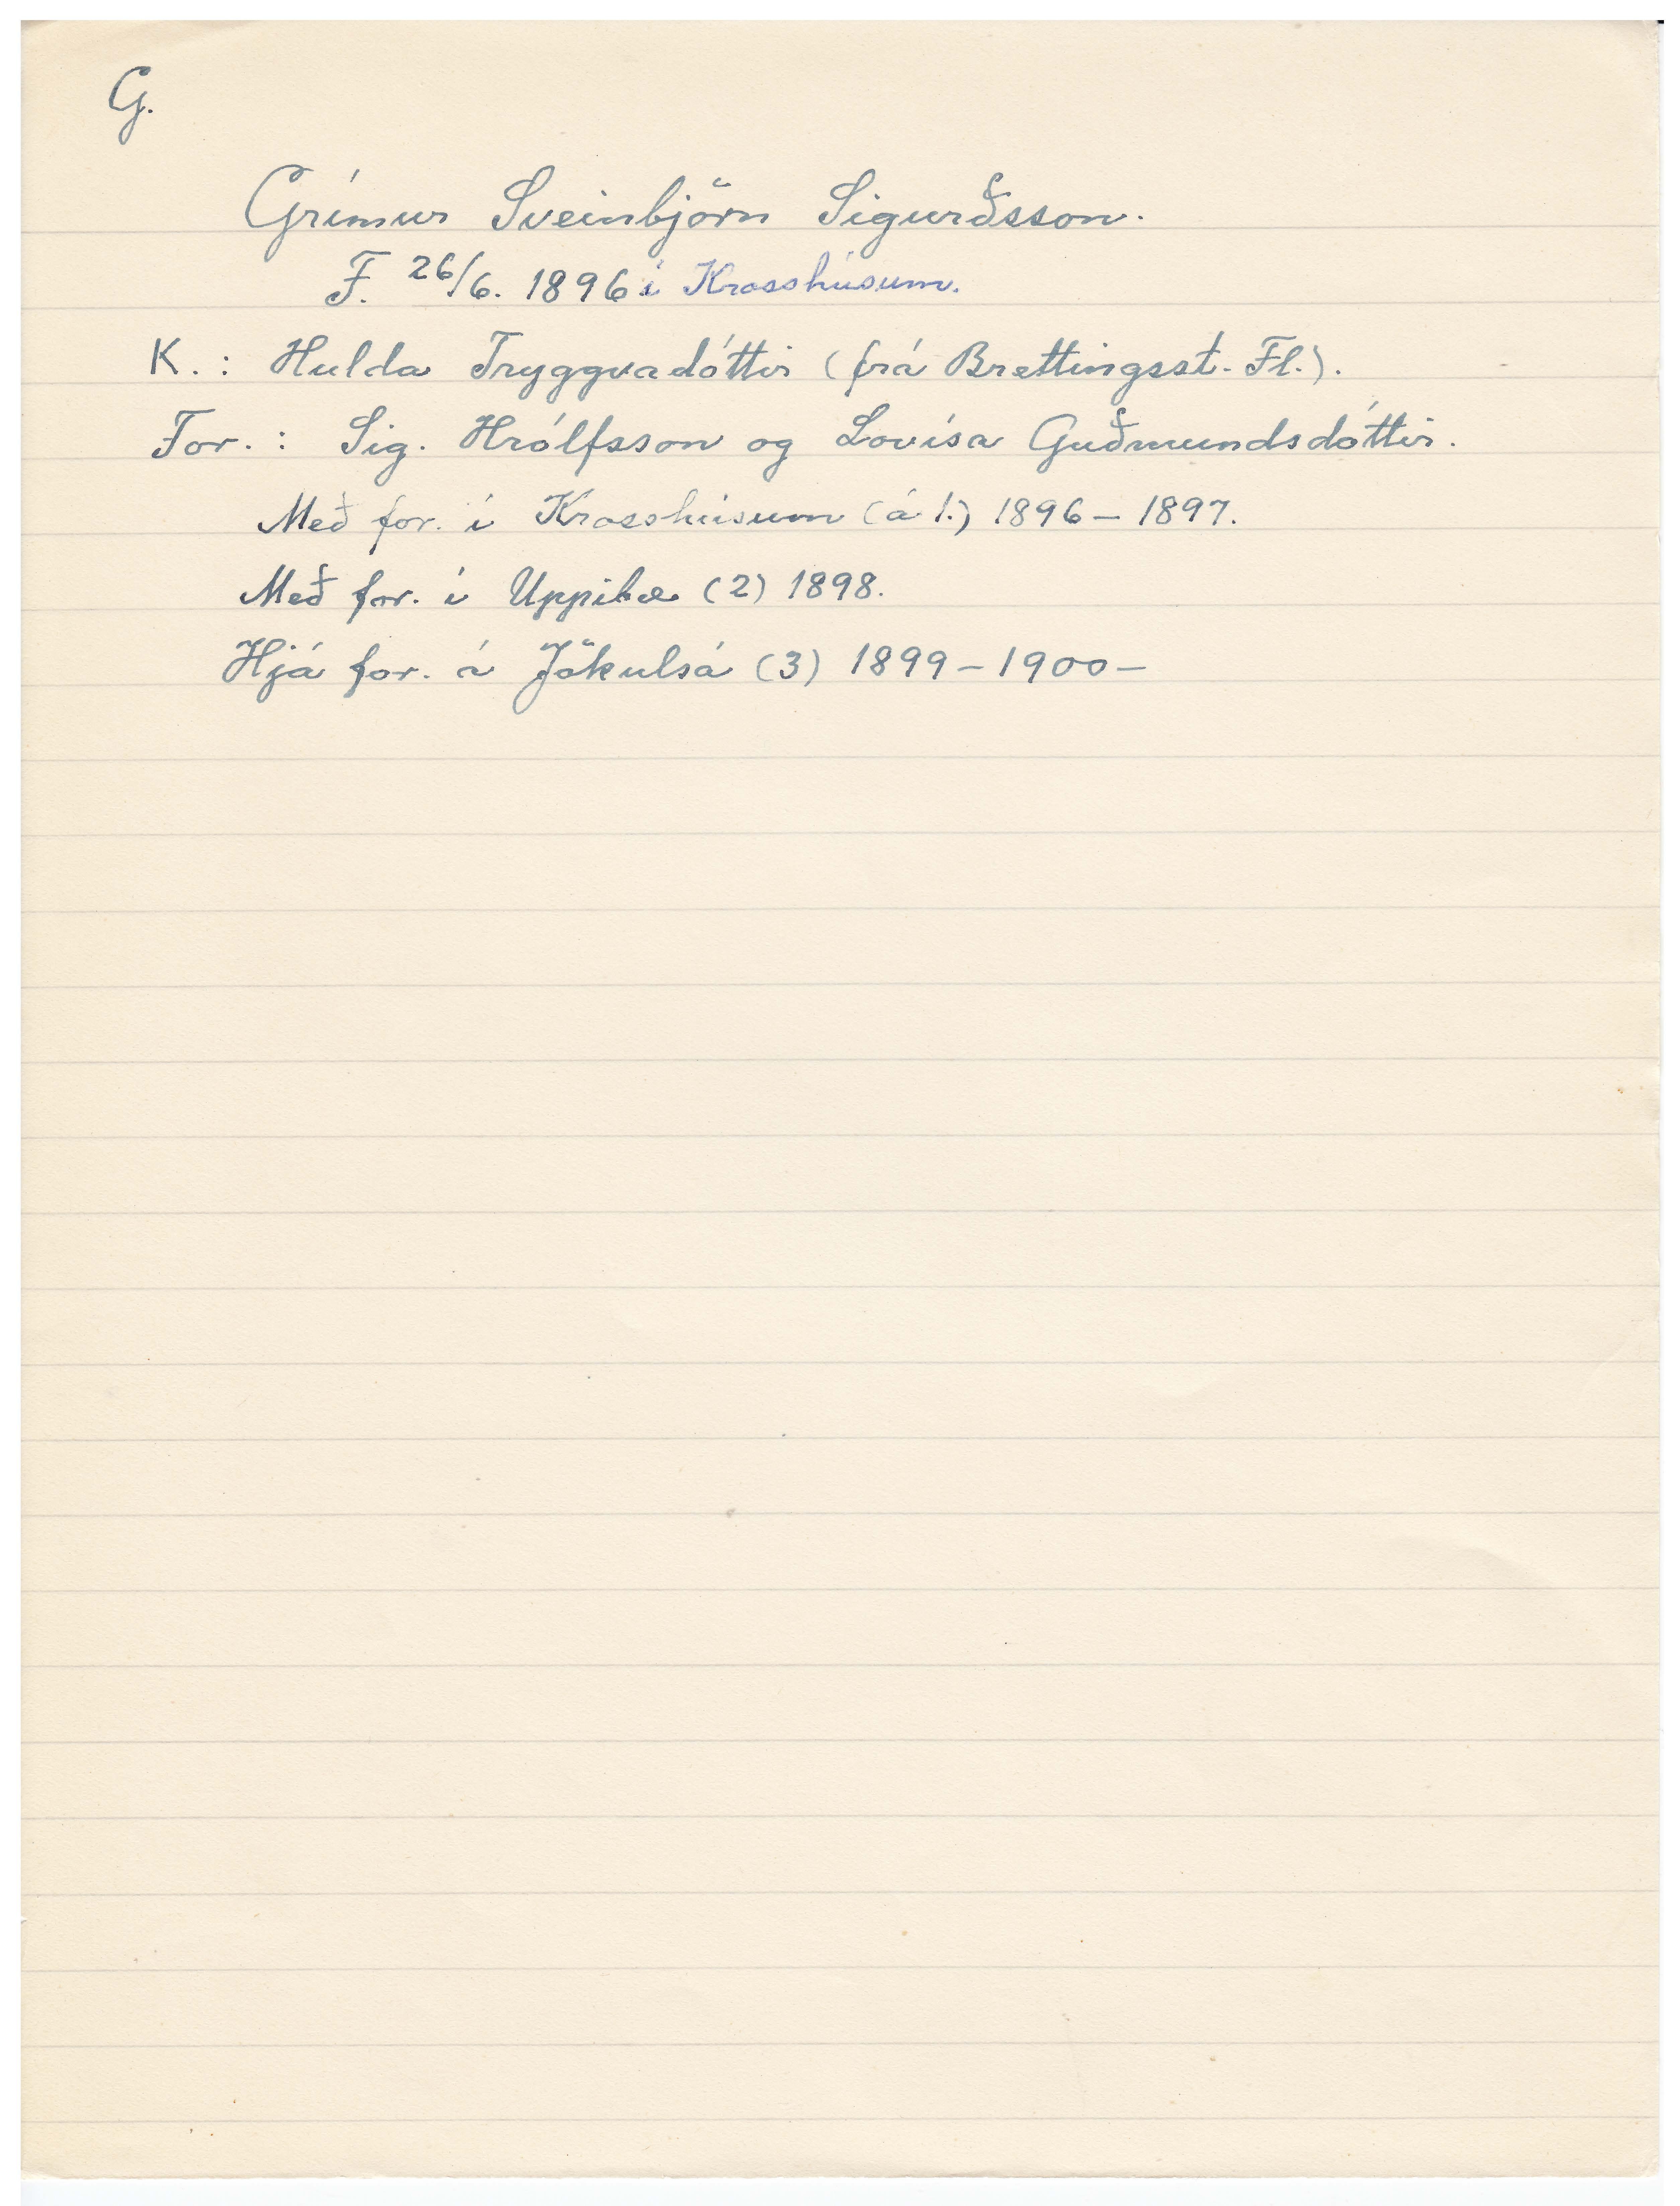 G.
Grímur Sveinbjörn Sigurðsson.
F. 26/6. 1896 í Krosshúsum.
K.: Hulda Tryggvadóttir (frá Brettingsst. Fl.).
For.: Sig. Hrólfsson og Lovísa Guðmundsdóttir.
Með for. í Krosshúsum (á 1.) 1896 – 1897.
Með for. í Uppibæ (2) 1898.
Hjá for. á Jökulsá (3) 1899 – 1900 –